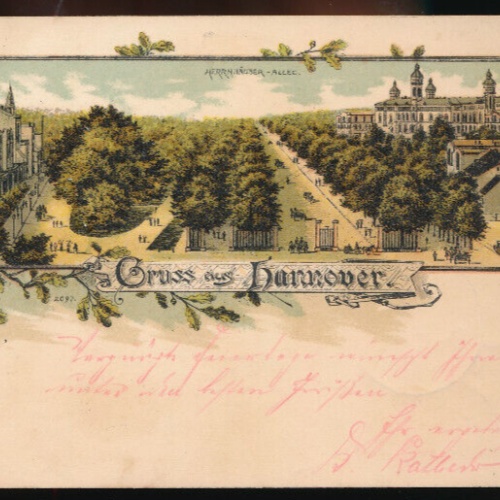 HERRNHÄUSER-ALLEE.
Gruss aus Hannover.
2697.
Vergnügte Feiertage wünscht Ihnen
unter den besten Grüßen
Ihr